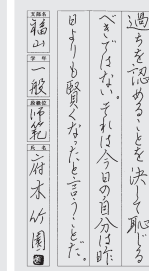 過ちを認めることを決して恥じる
べきではない。それは今日の自分は昨
日よりも賢くなったと言うことだ。
支部名
福山
学年
一般
段級位
師範
氏名
府木竹園